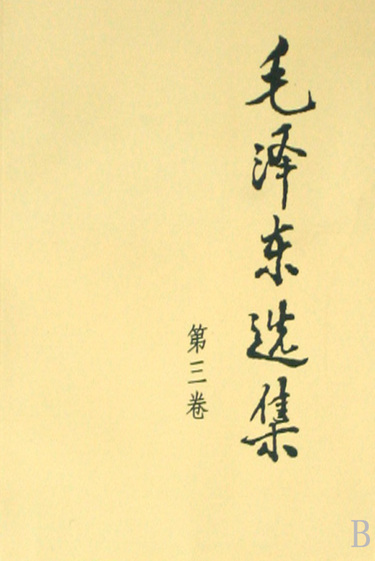 毛泽东选集
第三卷
B